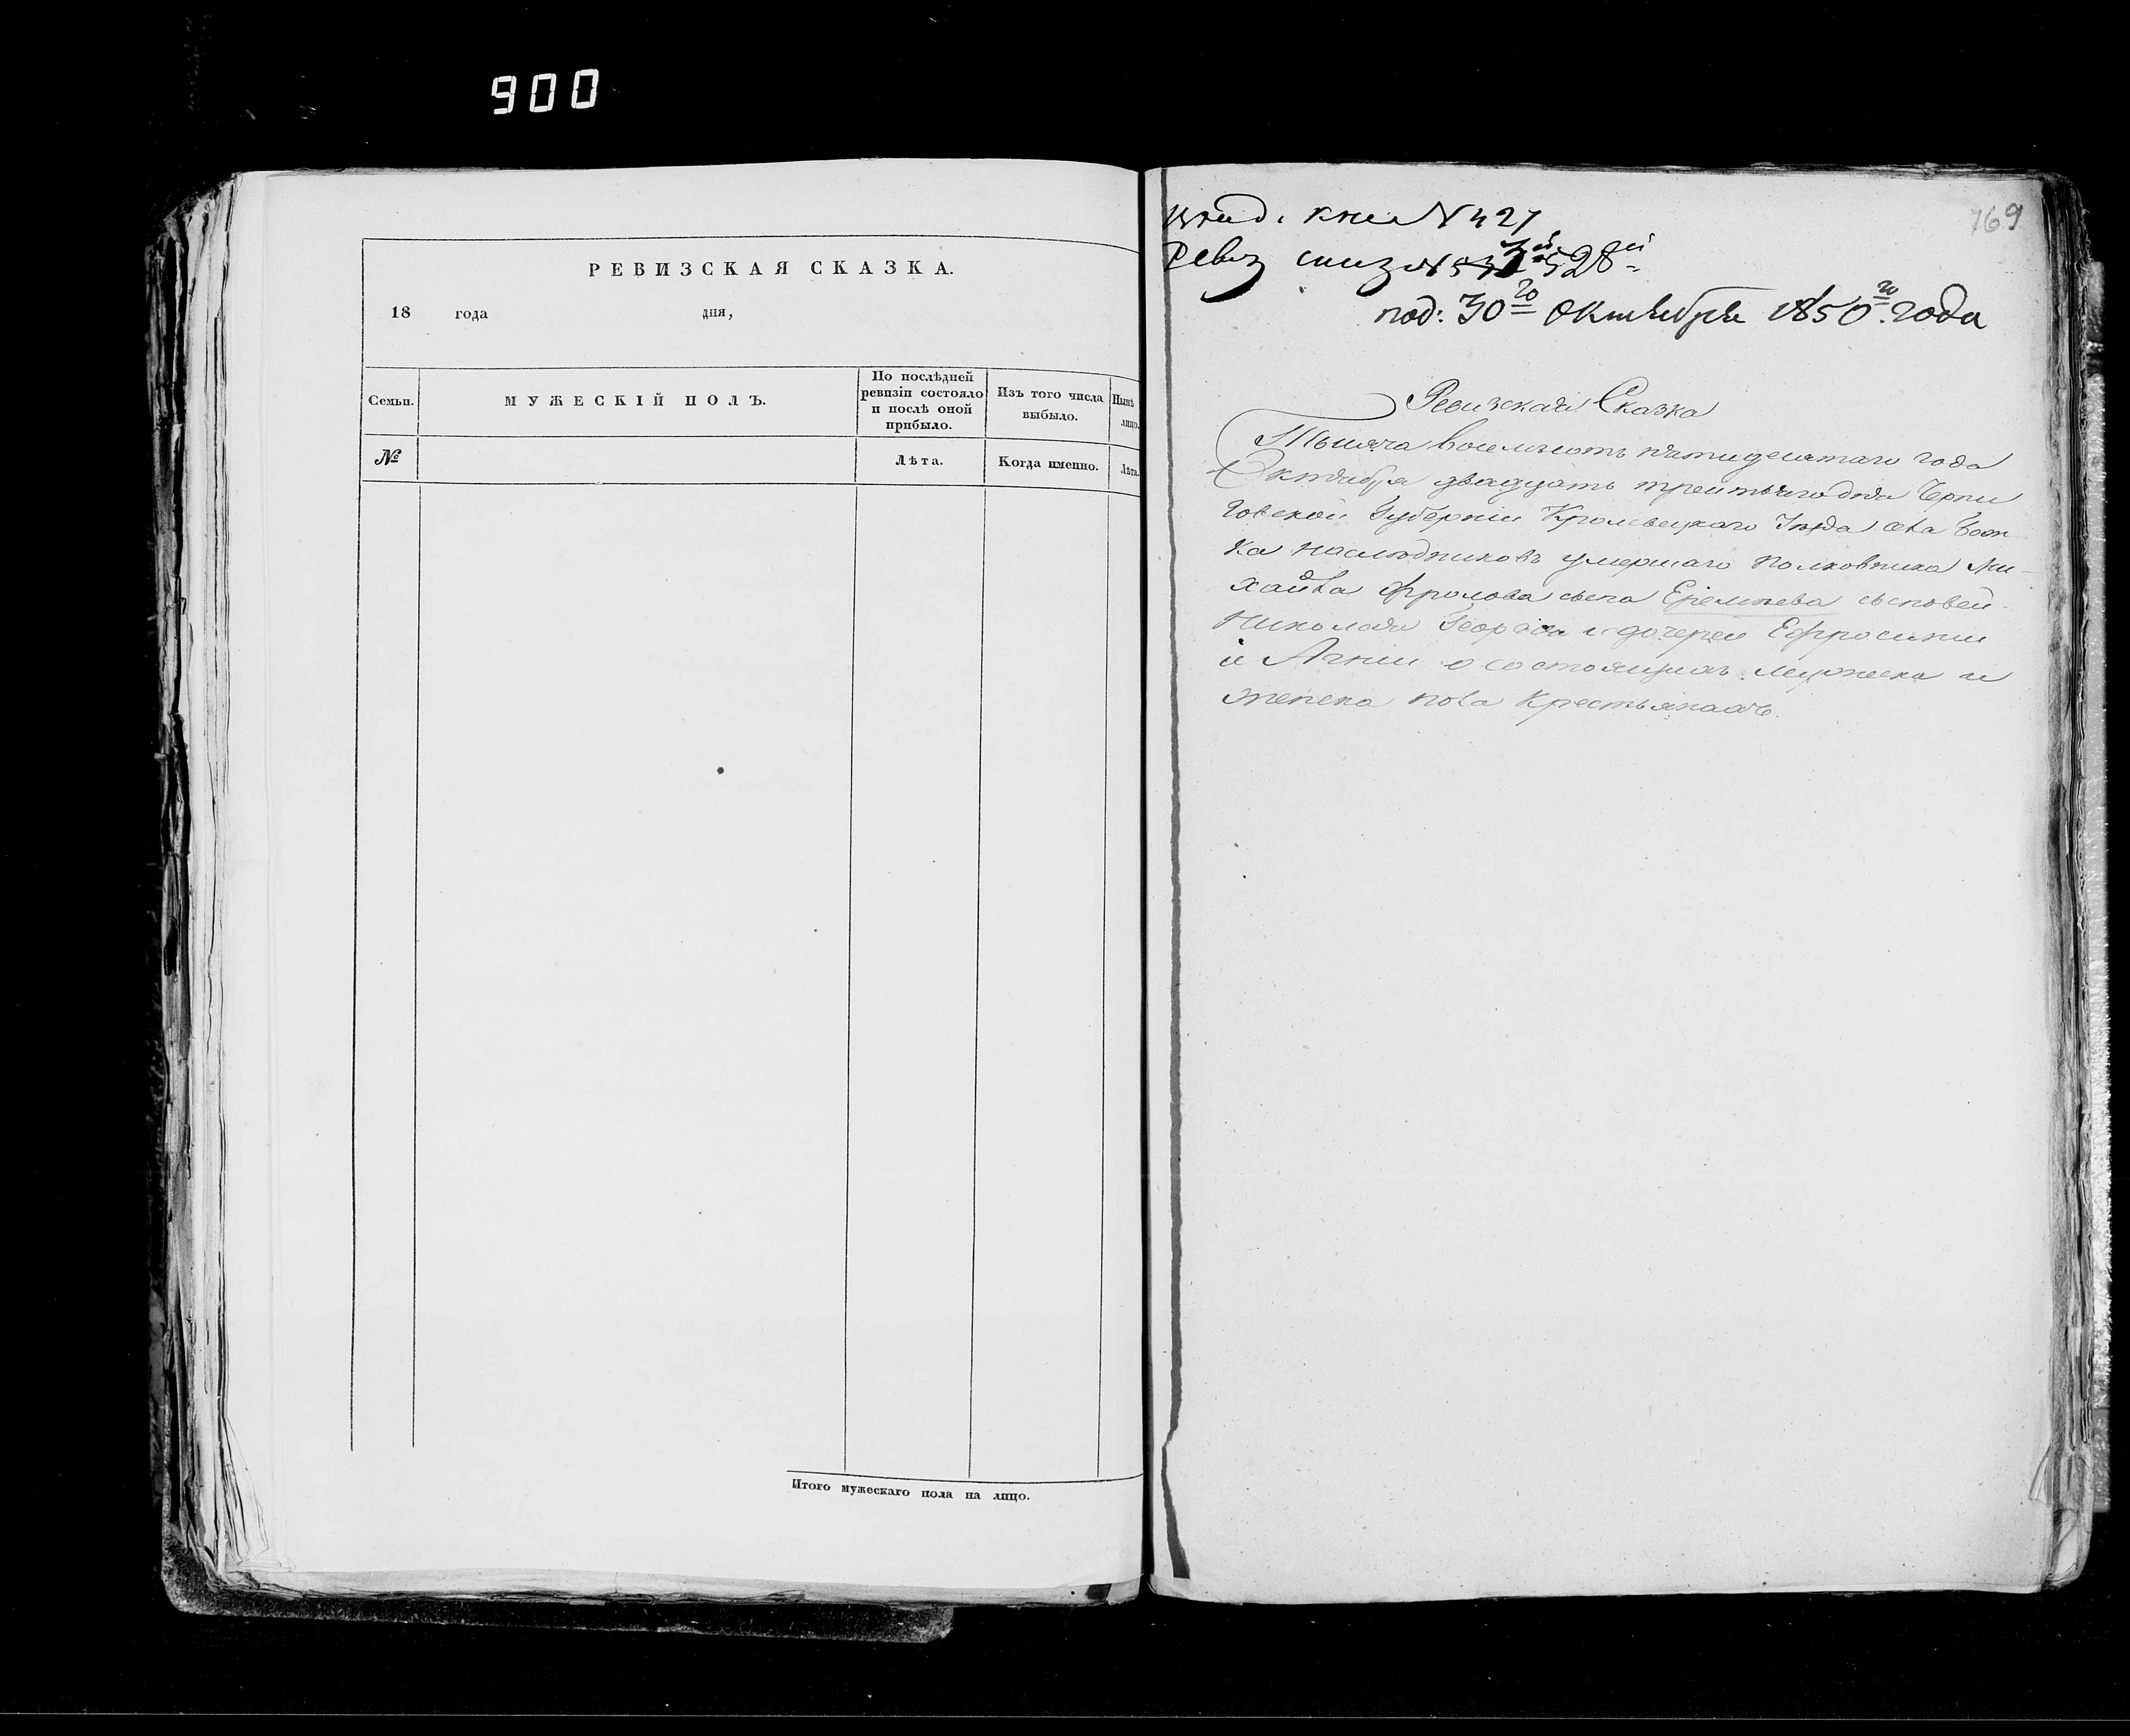 900
РЕВИЗСКАЯ СКАЗКА.
18 года дня,
Семьи.
МУЖЕСКІЙ ПОЛЪ.
По послѣдней
ревизіи состояло
и послѣ оной
прибыло.
Изъ того числа
выбыло.
Нынѣ
лицо.
№
Лѣта.
Когда именно.
Лѣта.
Итого мужескаго пола на лицо.
769
кни N 427
Ревиз 528й
под: 30го Октября 1850го года
Ревизская Сказка
Тысяча восемьсотъ пятидесятаго года
Октября двадцать третьяго дня Черни
говской Губерніи Кролевецкаго Уѣзда села
ка наслѣдниковъ умершаго Полковника Ми-
хайла Фролова сына Еремѣева сыновей
Николая Георгія и дочерей Ефросиніи
и Агніи о состоящихъ мужеска и
женска пола Крестьянахъ.